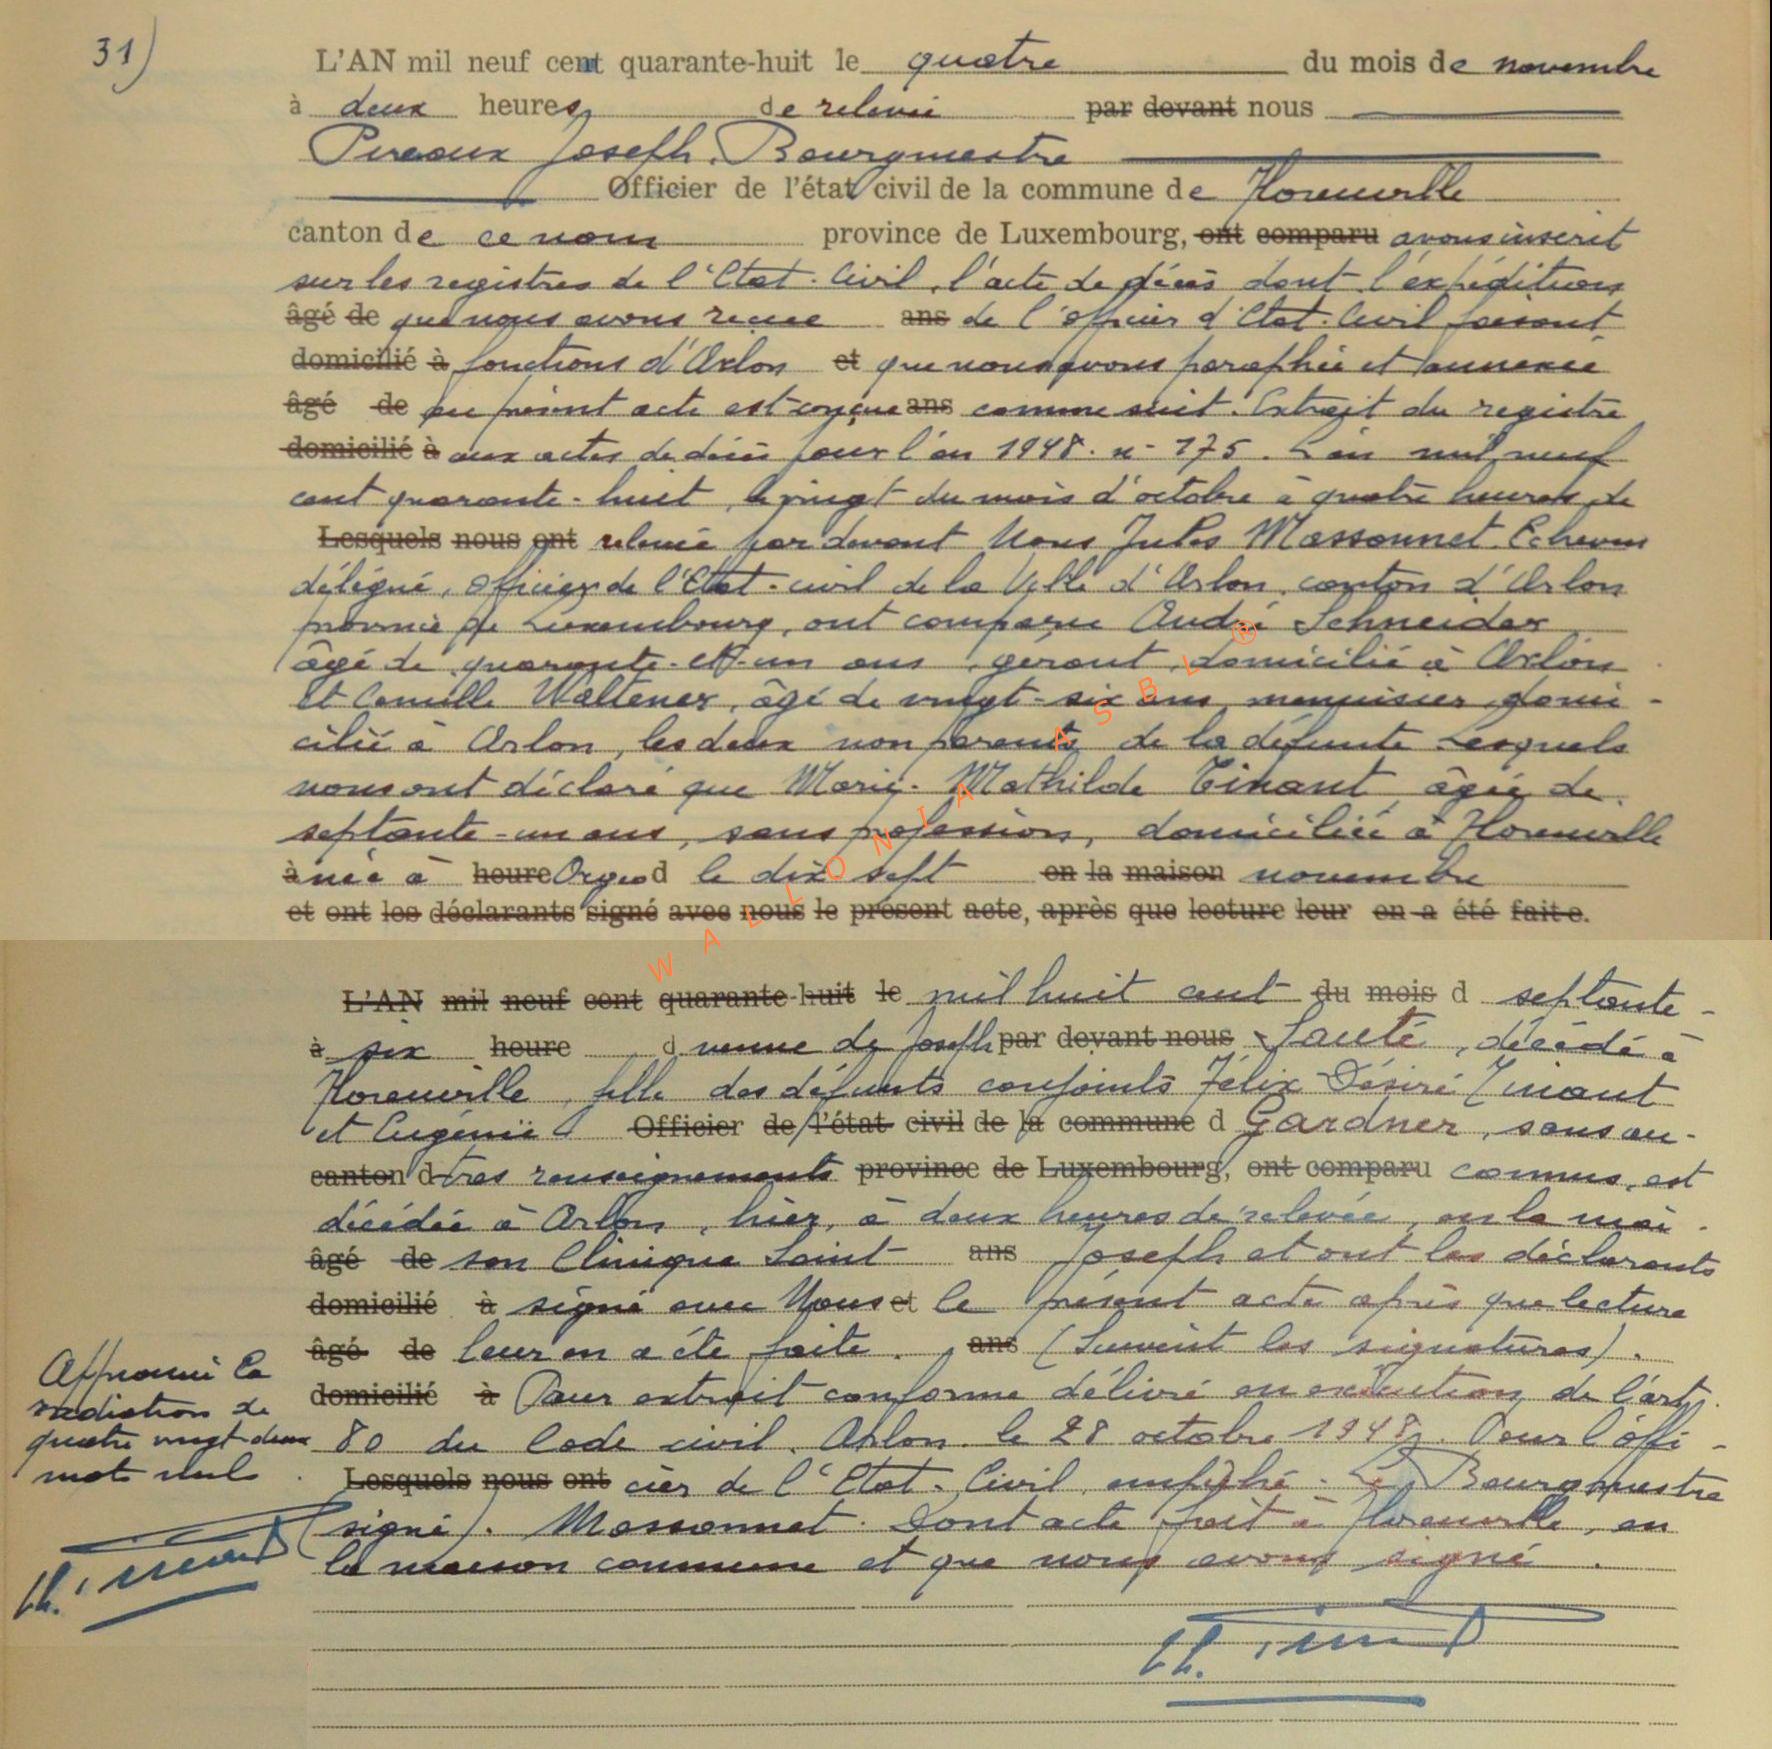 31)
L'AN mil neuf cent quarante-huit le quatre du mois de novembre
à deux heures de relevée par devant nous
Joseph, Bourgmestre
Officier de l'état civil de la commune de Florenville
canton de ce nom province de Luxembourg, ont comparu avons inscrit
sur les registres de l'Etat-Civil, l'acte de décès dont l'expédition
âgé de que nous avons reçue ans de l'officier d'Etat-Civil faisant
domicilié à fonctions d'Arlon et que nous avons paraphée et annexée
âgé de au présent acte est conçue ans comme suit. Extrait du registre
domicilié à aux actes de décès pour l'an 1948. n- 175. L'an mil neuf
cent quarante-huit, le vingt du mois d'octobre à quatre heures de
Lesquels nous ont relevée par devant Nous Jules Massonnet Echevin
délégué, officier de l'Etat-civil de la Ville d'Arlon, canton d'Arlon
province de Luxembourg, ont comparu André Schneider
âgé de quarante-et-un ans, gérant, domicilié à Arlon
et Camille Waltener, âgé de vingt-six ans, menuisier, domi-
cilié à Arlon, les deux non parents de la défunte Lesquels
nous ont déclaré que Marie-Mathilde Tinant, âgée de
septante-un ans, sans profession, domiciliée à Florenville
à née à heure Orgeo d le dix sept en la maison novembre
et ont les déclarants signé avec nous le présent acte, après que lecture leur en a été faite.
WALLONIA ASBL ®
L'AN mil neuf cent quarante-huit le mil huit cent du mois d septante-
à six heure d veuve de Joseph par devant nous Sauté, décédé à
Florenville, fille des défunts conjoints Félix Désiré Tinant
et Eugénie Officier de l'état civil de la commune d Gardner, sans au-
canton d tres renseignements province de Luxembourg, ont comparu connus, est
décédée à Arlon, hier, à deux heures de relevée, en la mai-
âgé de son Clinique Saint ans Joseph et ont les déclarants
domicilié à signé avec Nous et le présent acte après que lecture
âgé de leur en a été faite. ans (Suivent les signatures).
domicilié à Pour extrait conforme délivré en exécution de l'art.
80 du Code civil. Arlon le 28 octobre 1948. Pour l'offi-
Lesquels nous ont cier de l'Etat-Civil empêché - Le Bourgmestre
(signé). Massonnet. Dont acte fait à Florenville, en
la maison commune et que nous avons signé.
Approuvé la
radiation de
quatre vingt-deux
mots nuls